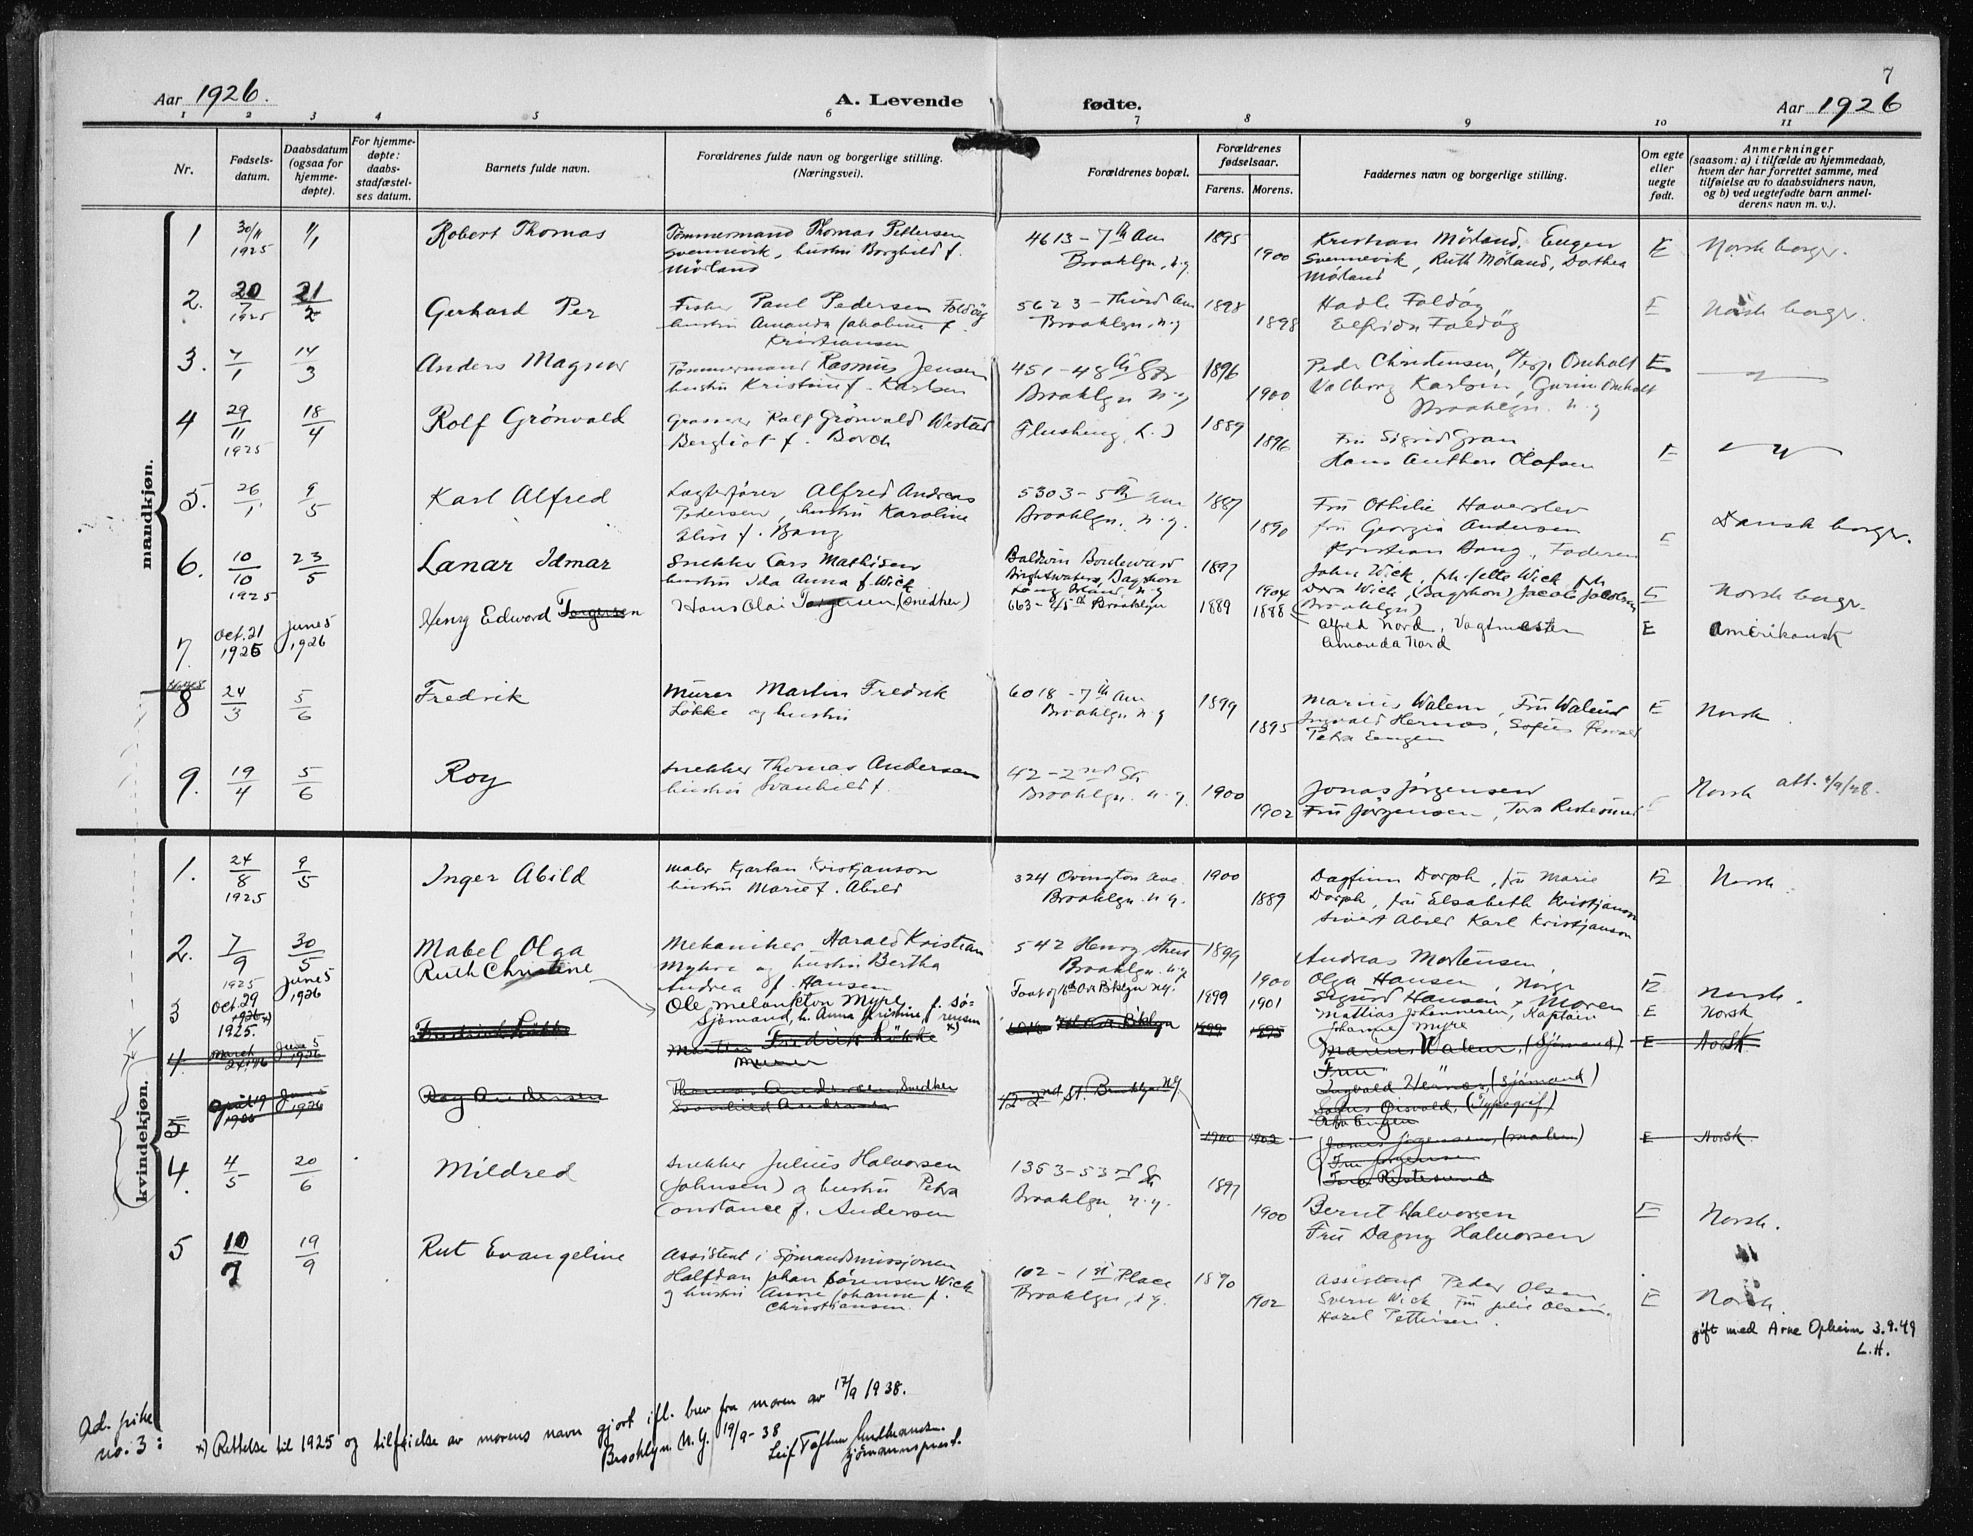 7
Aar 1926.
A. Levende fødte.
Aar 1926
1 2 3 4 5 6 7 8 9 10 11
Nr.
Fødsels-
datum.
Daabsdatum
(ogsaa for
hjemme-
døpte).
For hjemme-
døpte:
daabs-
stadfæstel-
ses datum.
Barnets fulde navn.
Forældrenes fulde navn og borgerlige stilling.
(Næringsvei).
Forældrenes bopæl.
Forældrenes
fødselsaar.
Farens. Morens.
Faddernes navn og borgerlige stilling.
Om egte
eller
uegte
født.
Anmerkninger
(saasom: a) i tilfælde av hjemmedaab,
hvem der har forrettet samme, med
tilføielse av to daabsvidners navn,
og b) ved uegtefødte barn anmel-
derens navn m. v.).
mandkjøn.
1 30/11 1925 1/1 Robert Thomas
Tømmermand Thomas Pettersen
Svennevik, hustru Borghild f.
Mørland
4613 - 7th Ave
Brooklyn, N.Y.
1895 1900
Kristian Mørland, Eugen
Svennevik, Ruth Mørland, Dorthea
Mørland
E Norsk borger.
2. 20/7 1925 21/2 Gerhard Per
Fisker Paul Pedersen Foldöy
hustru Amanda Jakobine f.
Kristiansen
5623 - Third Ave
Brooklyn, N.Y
1898 1898
Hadle Foldöy
Elfrida Foldöy
E Norsk borger.
3. 7/1 14/3 Anders Magnor
Tømmermand Rasmus Jensen
hustru Kristine f. Karlsen
451 - 48th Str
Brooklyn N.Y
1896 1900
Peder Christensen, Omholt
Valborg Karlsen, Omholt
Brooklyn. N.Y
E
4 29/11 1925 18/4 Rolf Grönvald
Rolf Grönvald Wistad
Bergliot f. Borch
Flushing, L.I
1889 1896
Fru Sigrid Gran
Hans Anthon Olafsen
E
5. 26/1 9/5 Karl Alfred
Alfred Andreas
Pedersen, hustru Karoline
f. Bang
5303 - 5th Ave
Brooklyn, N.Y.
1887 1890
Fru Othilie Haverslev
fru Georgia Andersen
Kristian Bang, Faderen
E Dansk borger.
6. 10/10 1925 23/5 Lanar Idmar
Snekker Lars Mathisen
hustru Ida Anna f. Wick
Baldwin Boulevard
Brightwaters, Bayshore
Long Island, N.Y
1897 1904
John Wick, Wick
Dora Wick, (Bayshore) Jacob Jacobsen
(Brooklyn)
E Norsk borger.
7. Oct. 21 1925 June 5 1926 Henry Edward Torgersen
Hans Olai Torgersen (snedker)
663 - 45th Brooklyn
1889 1888
Alfred Nord, Vagtmester
Amanda Nord
E Amerikansk
8 24/3 5/6 Fredrik
Murer Martin Fredrik
Løkke og hustru
6018 - 7th Ave
Brooklyn N.Y
1899 1895
Marius Walem, Fru Walem
Ingvald Hernes, Sofus
Petra Engen
E Norsk.
9. 19/4 5/6 Roy
Snekker Thomas Andersen
hustru Svanhild f.
42 - 2nd St.
Brooklyn, N.Y.
1900 1902
Jonas Jørgensen
Fru Jørgensen, Tora Ristesund
Norsk att. 4/9/48.
kvindekjøn.
1. 24/8 1925 9/5 Inger Abild
Maler Kjartan Kristjanson
hustru Marie f. Abild
324 Ovington Ave.
Brooklyn N.Y.
1900 1889
Dagfinn Dorph, fru Marie
Dorph, fru Elsabeth Kristjanson
Sivert Abild Karl Kristjanson
E Norsk.
2. 7/9 1925 30/5 Mabel Olga
Mekaniker Harald Kristian
Myhre og hustru Bertha
Andrea f. Hansen
542 Henry Street
Brooklyn. N.Y
1899 1900
Andreas Mortensen
Olga Hansen, Norge
Sigurd Hansen + Moren
E Norsk.
3 Oct. 29 1926 x) 1925. June 5 1926 Ruth Christine
Ole Melankton Myre,
Sjømand, h. Anna Kristine, f. Sø-
rensen x)
Foot of 16th Ave Bklyn N.Y.
1899 1901
Mattias Johannesen, Kaptein
Johanne Myre
E Norsk
4 March 24 1926 June 5 1926 Fredrik Løkke
Martin Fredrik Løkke
Murer
1899 1895
Marius Walem, (Sjømand)
Fru "
Ingvald Hernes, (sjømand)
Sofus Orsvold, (Typograf)
Petra Engen
E Norsk
5 April 19 1926 June 5 1926 Roy Andersen
Thomas Andersen Snedker
Svanhild Andersen
42 2nd St. Brooklyn N.Y
1900 1902
Jonas Jørgensen, (maler)
Fru Jørgensen
Tora Ristesund
E Norsk
4. 4/5 20/6 Mildred
Snekker Julius Halvorsen
(Johnsen) og hustru Petra
Constance f. Andersen
1353 - 53rd St
Brooklyn N.Y.
1897 1900
Bernt Halvorsen
Fru Dagny Halvorsen
E Norsk.
5 10/7 19/9 Rut Evangeline
Assistent i Sjømandsmissjonen
Halfdan Johan Sørensen Wick
og hustru Anne Johanne f.
Christiansen.
102 - 1st Place
Brooklyn, N.Y.
1890 1902
Assistent Peder Olsen
Sverre Wick, Fru Julie Olsen,
Hazel Pettersen.
E Norsk.
gift med Arne Opheim 3.9.49
L.H.
Ad. pike
no. 3:
x) Rettelse til 1925 og tilføielse av morens navn gjort ifl. brev fra moren av 17/9 1938.
Brooklyn N.Y. 19/9 - 38
Leif
sjømannsprest.